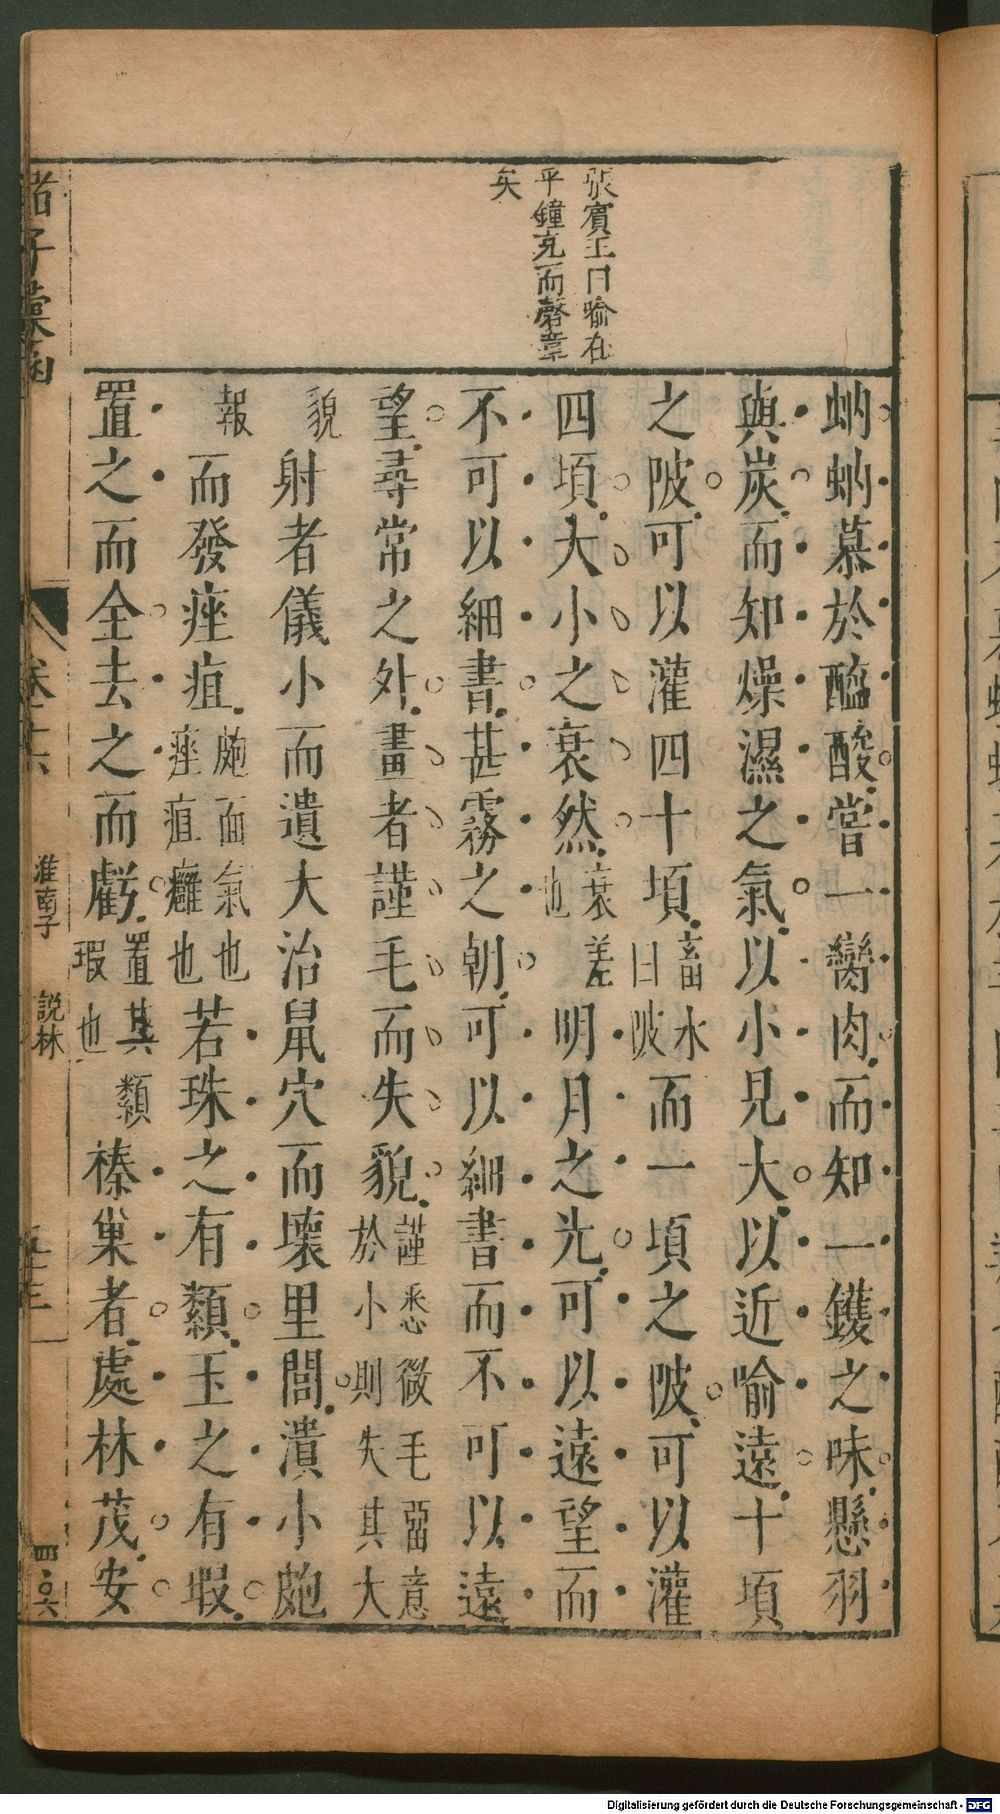 張賓王曰喻在
乎鐘充而磬章
矣
蚋蚋慕於醯酸嘗一臠肉而知一鑊之味懸羽
與炭而知燥濕之氣以小見大以近喻遠十頃
之陂可以灌四十頃畜水曰陂而一頃之陂可以灌
四頃大小之衰然衰差也明月之光可以遠望而
不可以細書甚霧之朝可以細書而不可以遠
望尋常之外畫者謹毛而失貌謹悉微毛畱意於小則失其大
貌射者儀小而遺大治鼠穴而壞里閭潰小皰
報而發痤疽皰面氣也痤疽癰也若珠之有纇玉之有瑕
置之而全去之而虧置其瑕也纇榛巢者處林茂安
諸子彙函
卷十六
淮南子 說林
五十三
四六
Digitalisierung gefördert durch die Deutsche Forschungsgemeinschaft - DFG